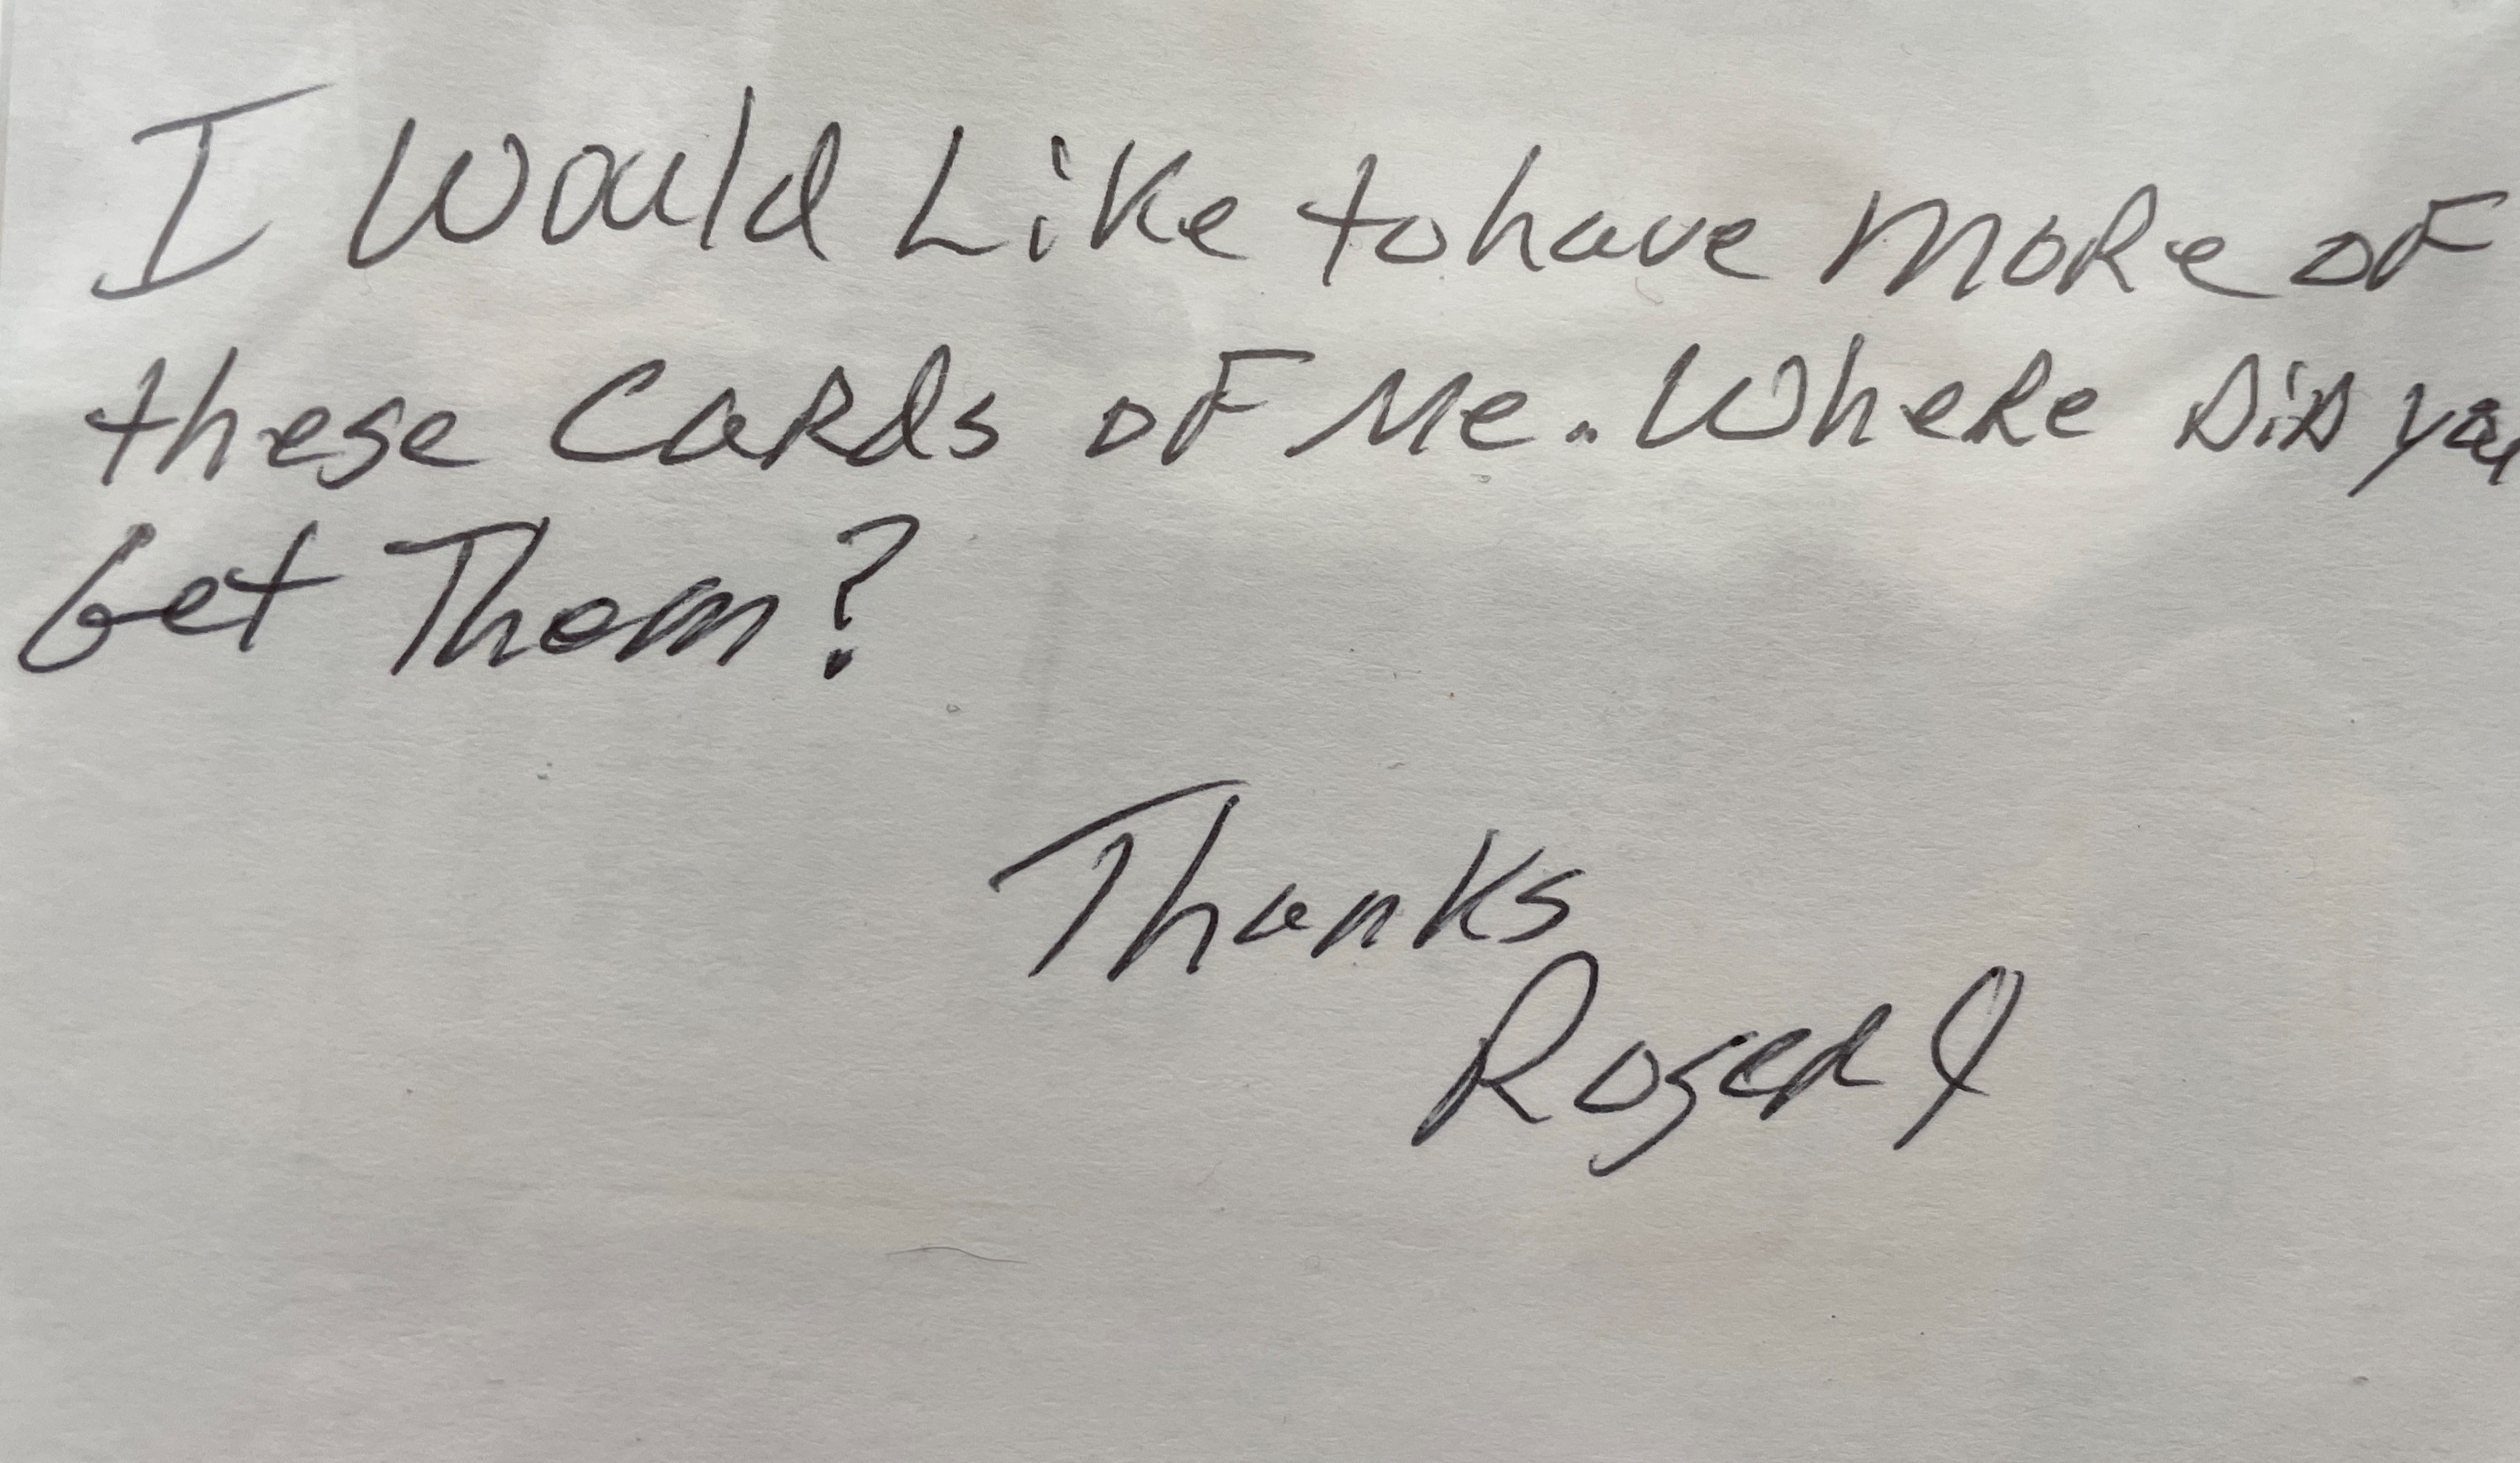 I Would Like to have more of
these Cards of Me. Where Did you
Get Them?
Thanks
Roger